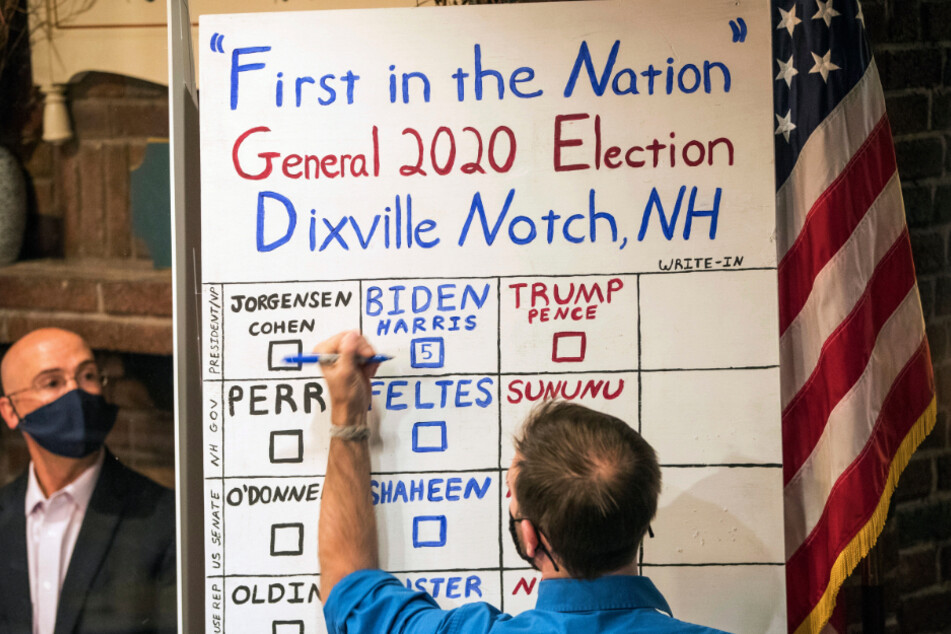 "First in the Nation"
General 2020 Election
Dixville Notch, NH
WRITE-IN
PRESIDENT/VP
JORGENSEN
COHEN
BIDEN
HARRIS
5
TRUMP
PENCE
NH GOV
PERR
FELTES
SUNUNU
US SENATE
O'DONNE
SHAHEEN
USE REP
OLDIN
USTER
N